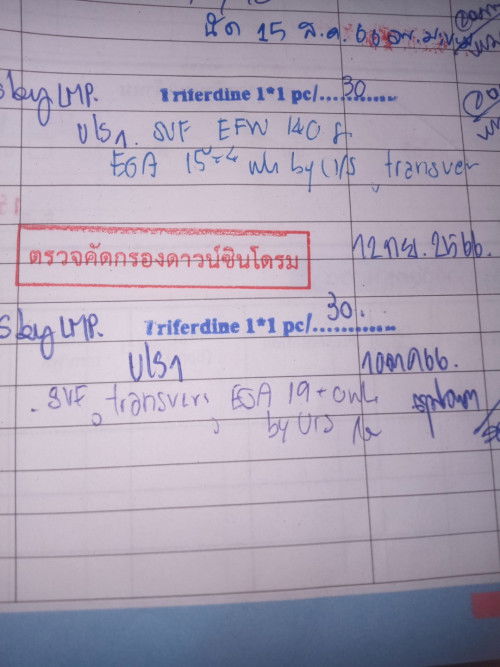 นัด 15 ส.ค. 66
s by LMP. Triferdine 1*1 pc/...30...
U/S1. SVF EFW 140 g.
EGA 15+4 wk by U/S, transver
ตรวจคัดกรองดาวน์ซินโดรม 12 กย. 2566.
s by LMP. Triferdine 1*1 pc/...30...
U/S1 10 ตค 66.
. SVF, transvers EGA 19+0 wk
by U/S